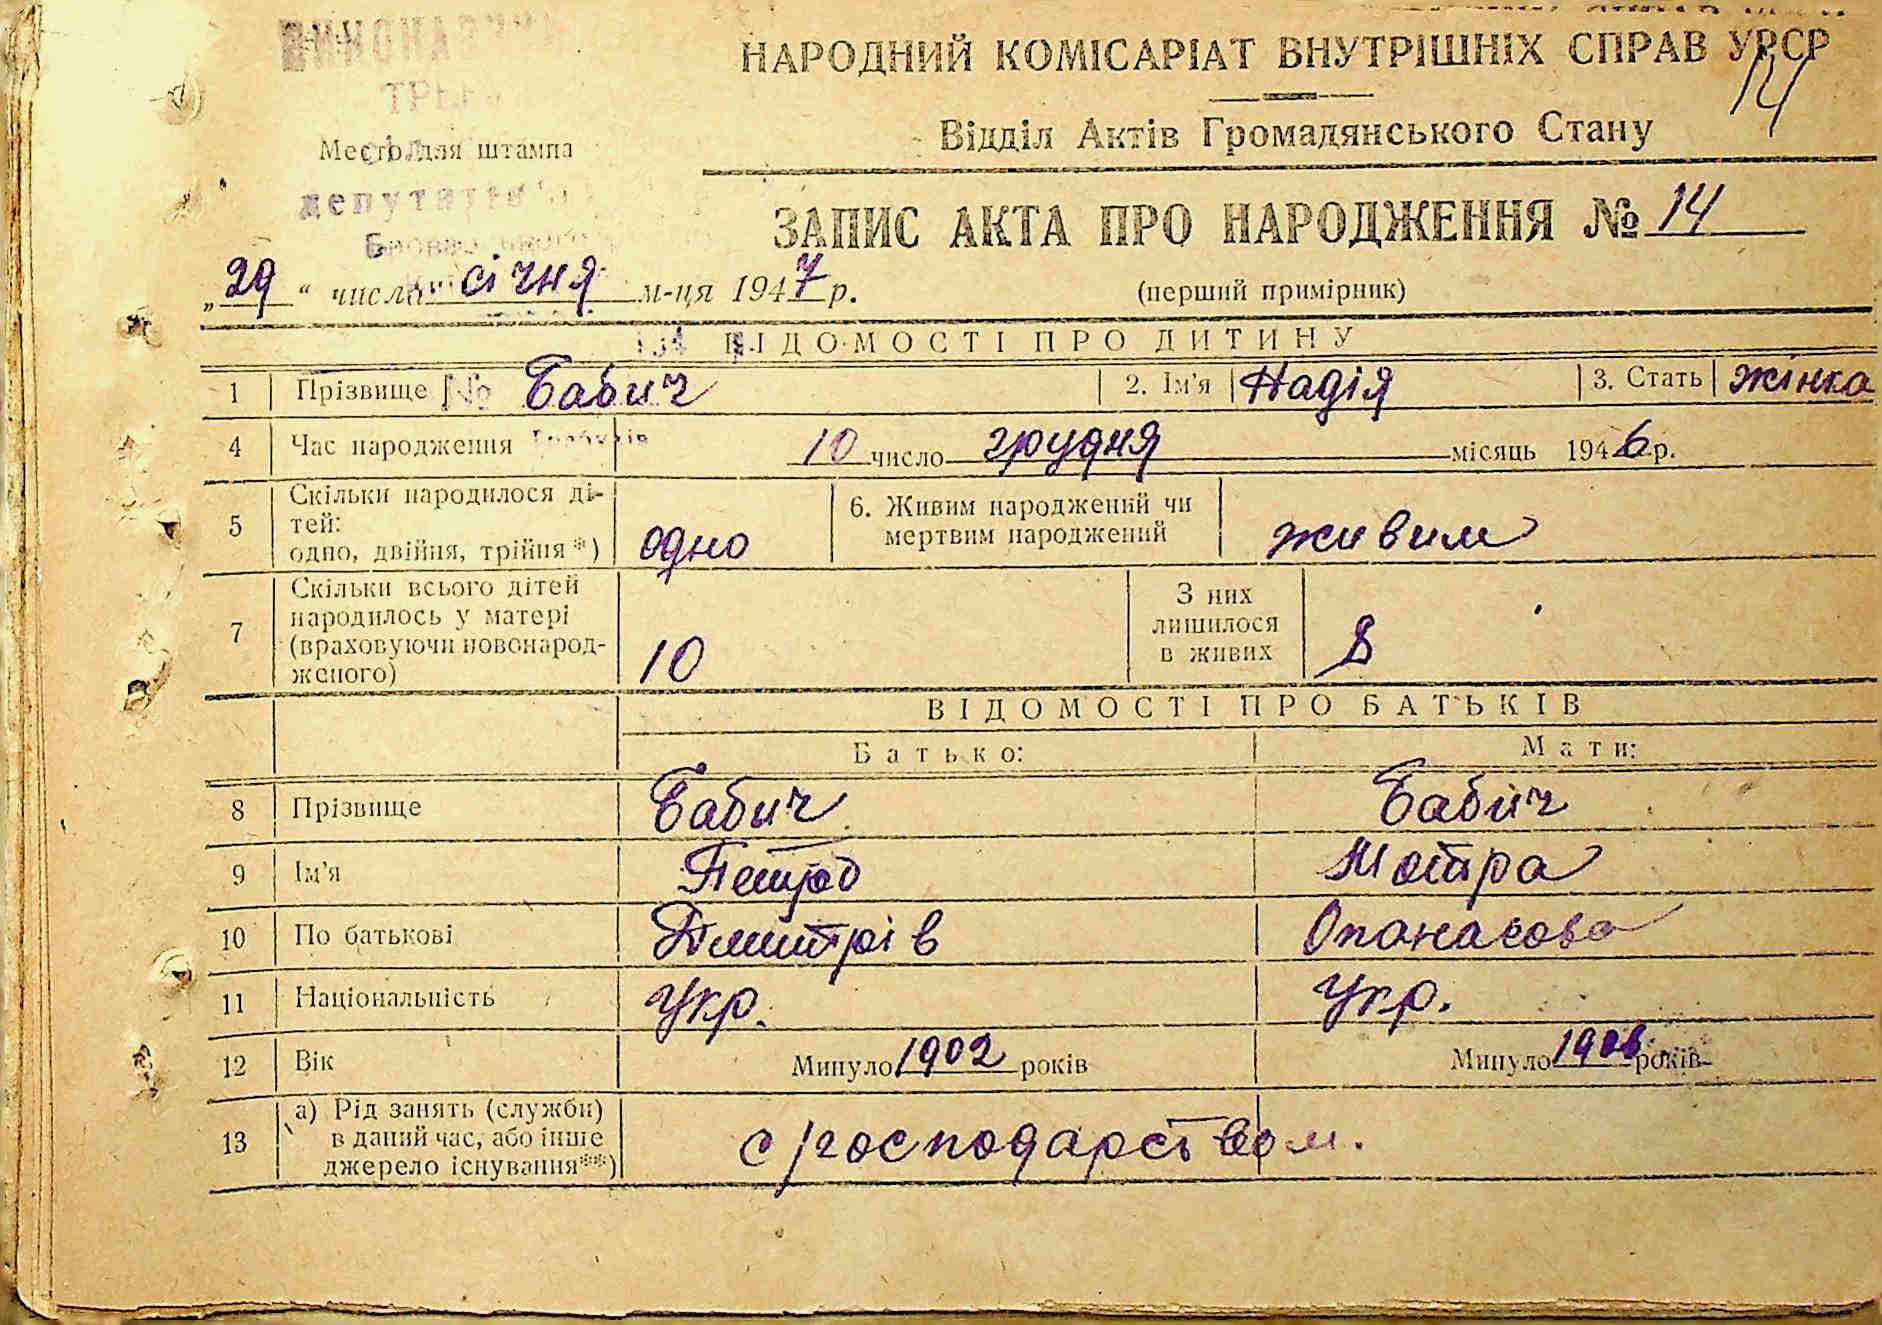 НАРОДНИЙ КОМІСАРІАТ ВНУТРІШНІХ СПРАВ УРСР
14
Відділ Актів Громадянського Стану
Место для штампа
депутатів
ЗАПИС АКТА ПРО НАРОДЖЕННЯ № 14
„29“ числа січня м-ця 1947 р.
(перший примірник)
ВІДОМОСТІ ПРО ДИТИНУ
1 Прізвище Бабич 2. Ім'я Надія 3. Стать жінка
4 Час народження 10 число грудня місяць 1946 р.
5 Скільки народилося ді-
тей:
одно, двійня, трійня*) одно
6. Живим народжений чи
мертвим народжений живим
7 Скільки всього дітей
народилось у матері
(враховуючи новонарод-
женого) 10
З них
лишилося
в живих 8
ВІДОМОСТІ ПРО БАТЬКІВ
Батько: Мати:
8 Прізвище Бабич Бабич
9 Ім'я Петро Мотра
10 По батькові Дмитрів Опанасова
11 Національність Укр. Укр.
12 Вік Минуло 1902 років Минуло років
13 а) Рід занять (служби)
в даний час, або інше
джерело існування**) с/господарством.